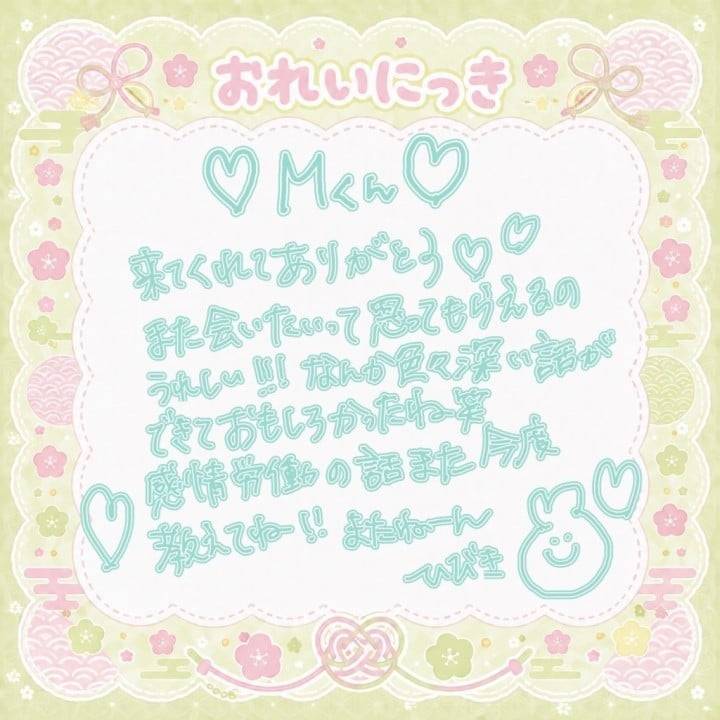 おれいにっき
♡ Mくん ♡
来てくれてありがとう♡♡
また会いたいって思ってもらえるの
うれしい!!! なんか色々深い話が
できておもしろかったね笑
感情労働の話また今度
教えてね〜!! またねーん
ひびき